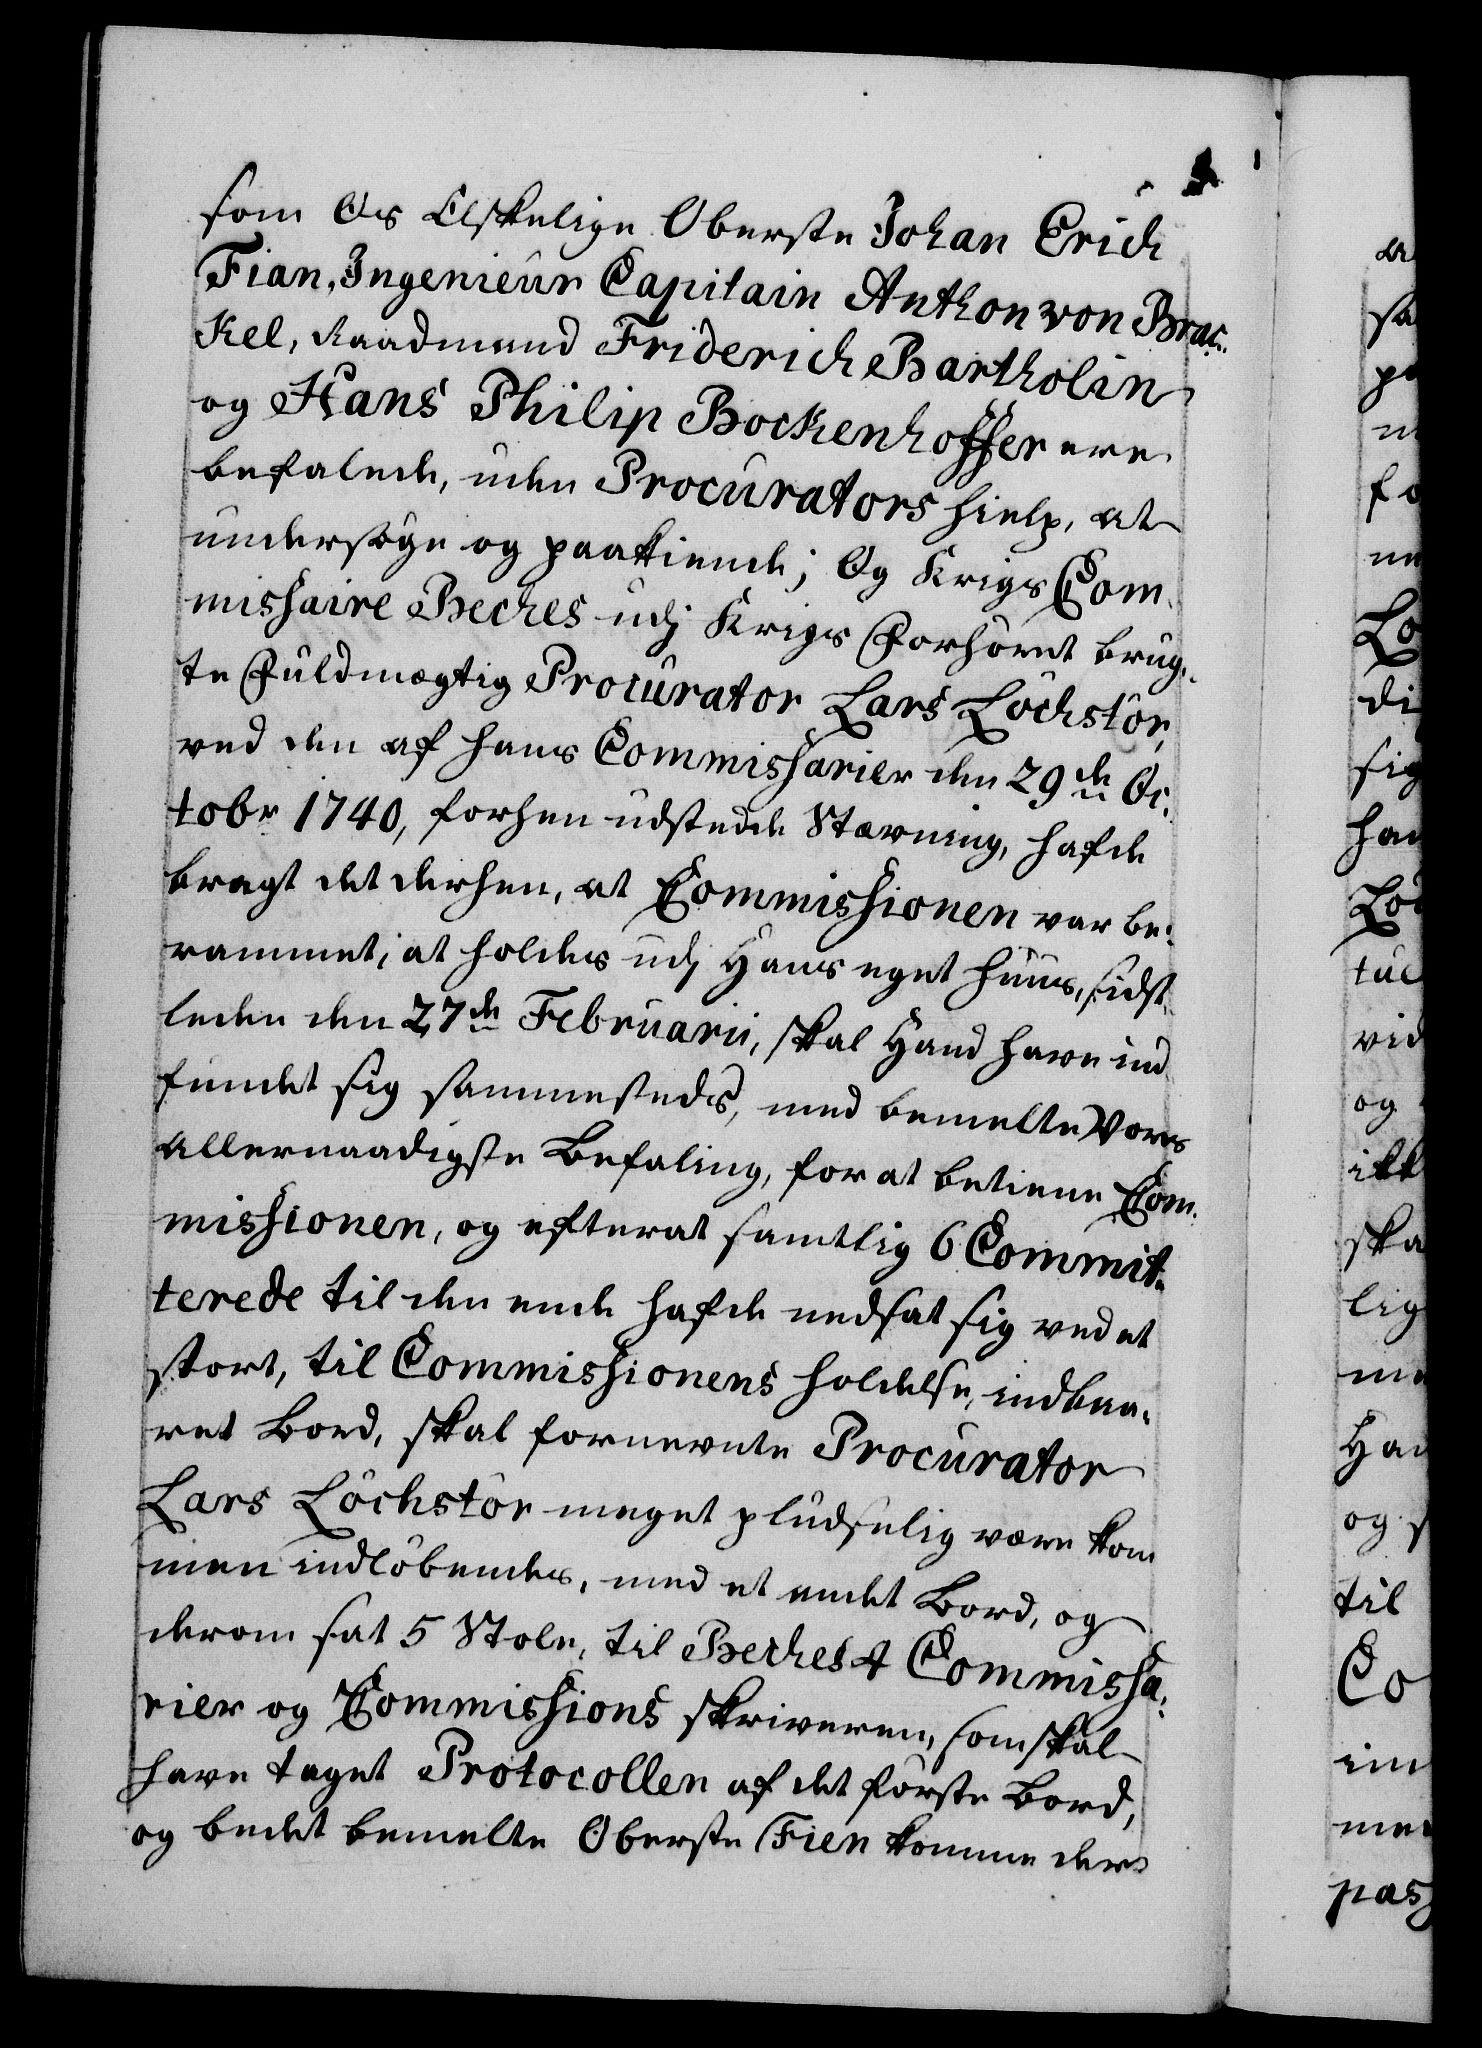 som Os Elskelige Oberste Johan Erich
Fian, Ingenieur Capitain Anthon von Brac-
kel, Raadmand Friderich Bartholin
og Hans Philip Bockenhoffer ere
befalede, uden Procurators hielp, at
undersøge og paakiende; Og Krigs Com-
missaire Beches udj Krigs Forhøret brug-
te Fuldmægtig Procurator Lars Löchstör,
ved den af hans Commissarier den 29de Oc-
tobr 1740, forhen udstedde Stævning, hafde
bragt det derhen, at Commissionen var be-
rammet, at holdes udj Hans eget huus, sidst-
leden den 27de Februarii, skal Hand have ind-
fundet sig sammesteds, med bemelte Vores
allernaadigste Befaling, for at betiene Com-
missionen, og efterat samtlig 6 Commit-
terede til den ende hafde nedsat sig ved et
stort, til Commissionens holdelse, indbaa-
ret Bord, skal fornevnte Procurator
Lars Löchstör meget pludselig være kom
men indløbendes, med et andet Bord, og
derom sat 5 Stole, til Beches 4 Commissa-
rier og Commissions skriveren, som skal
have taget Protocollen af det første Bord,
og bedet bemelte Oberste Fien komme der-